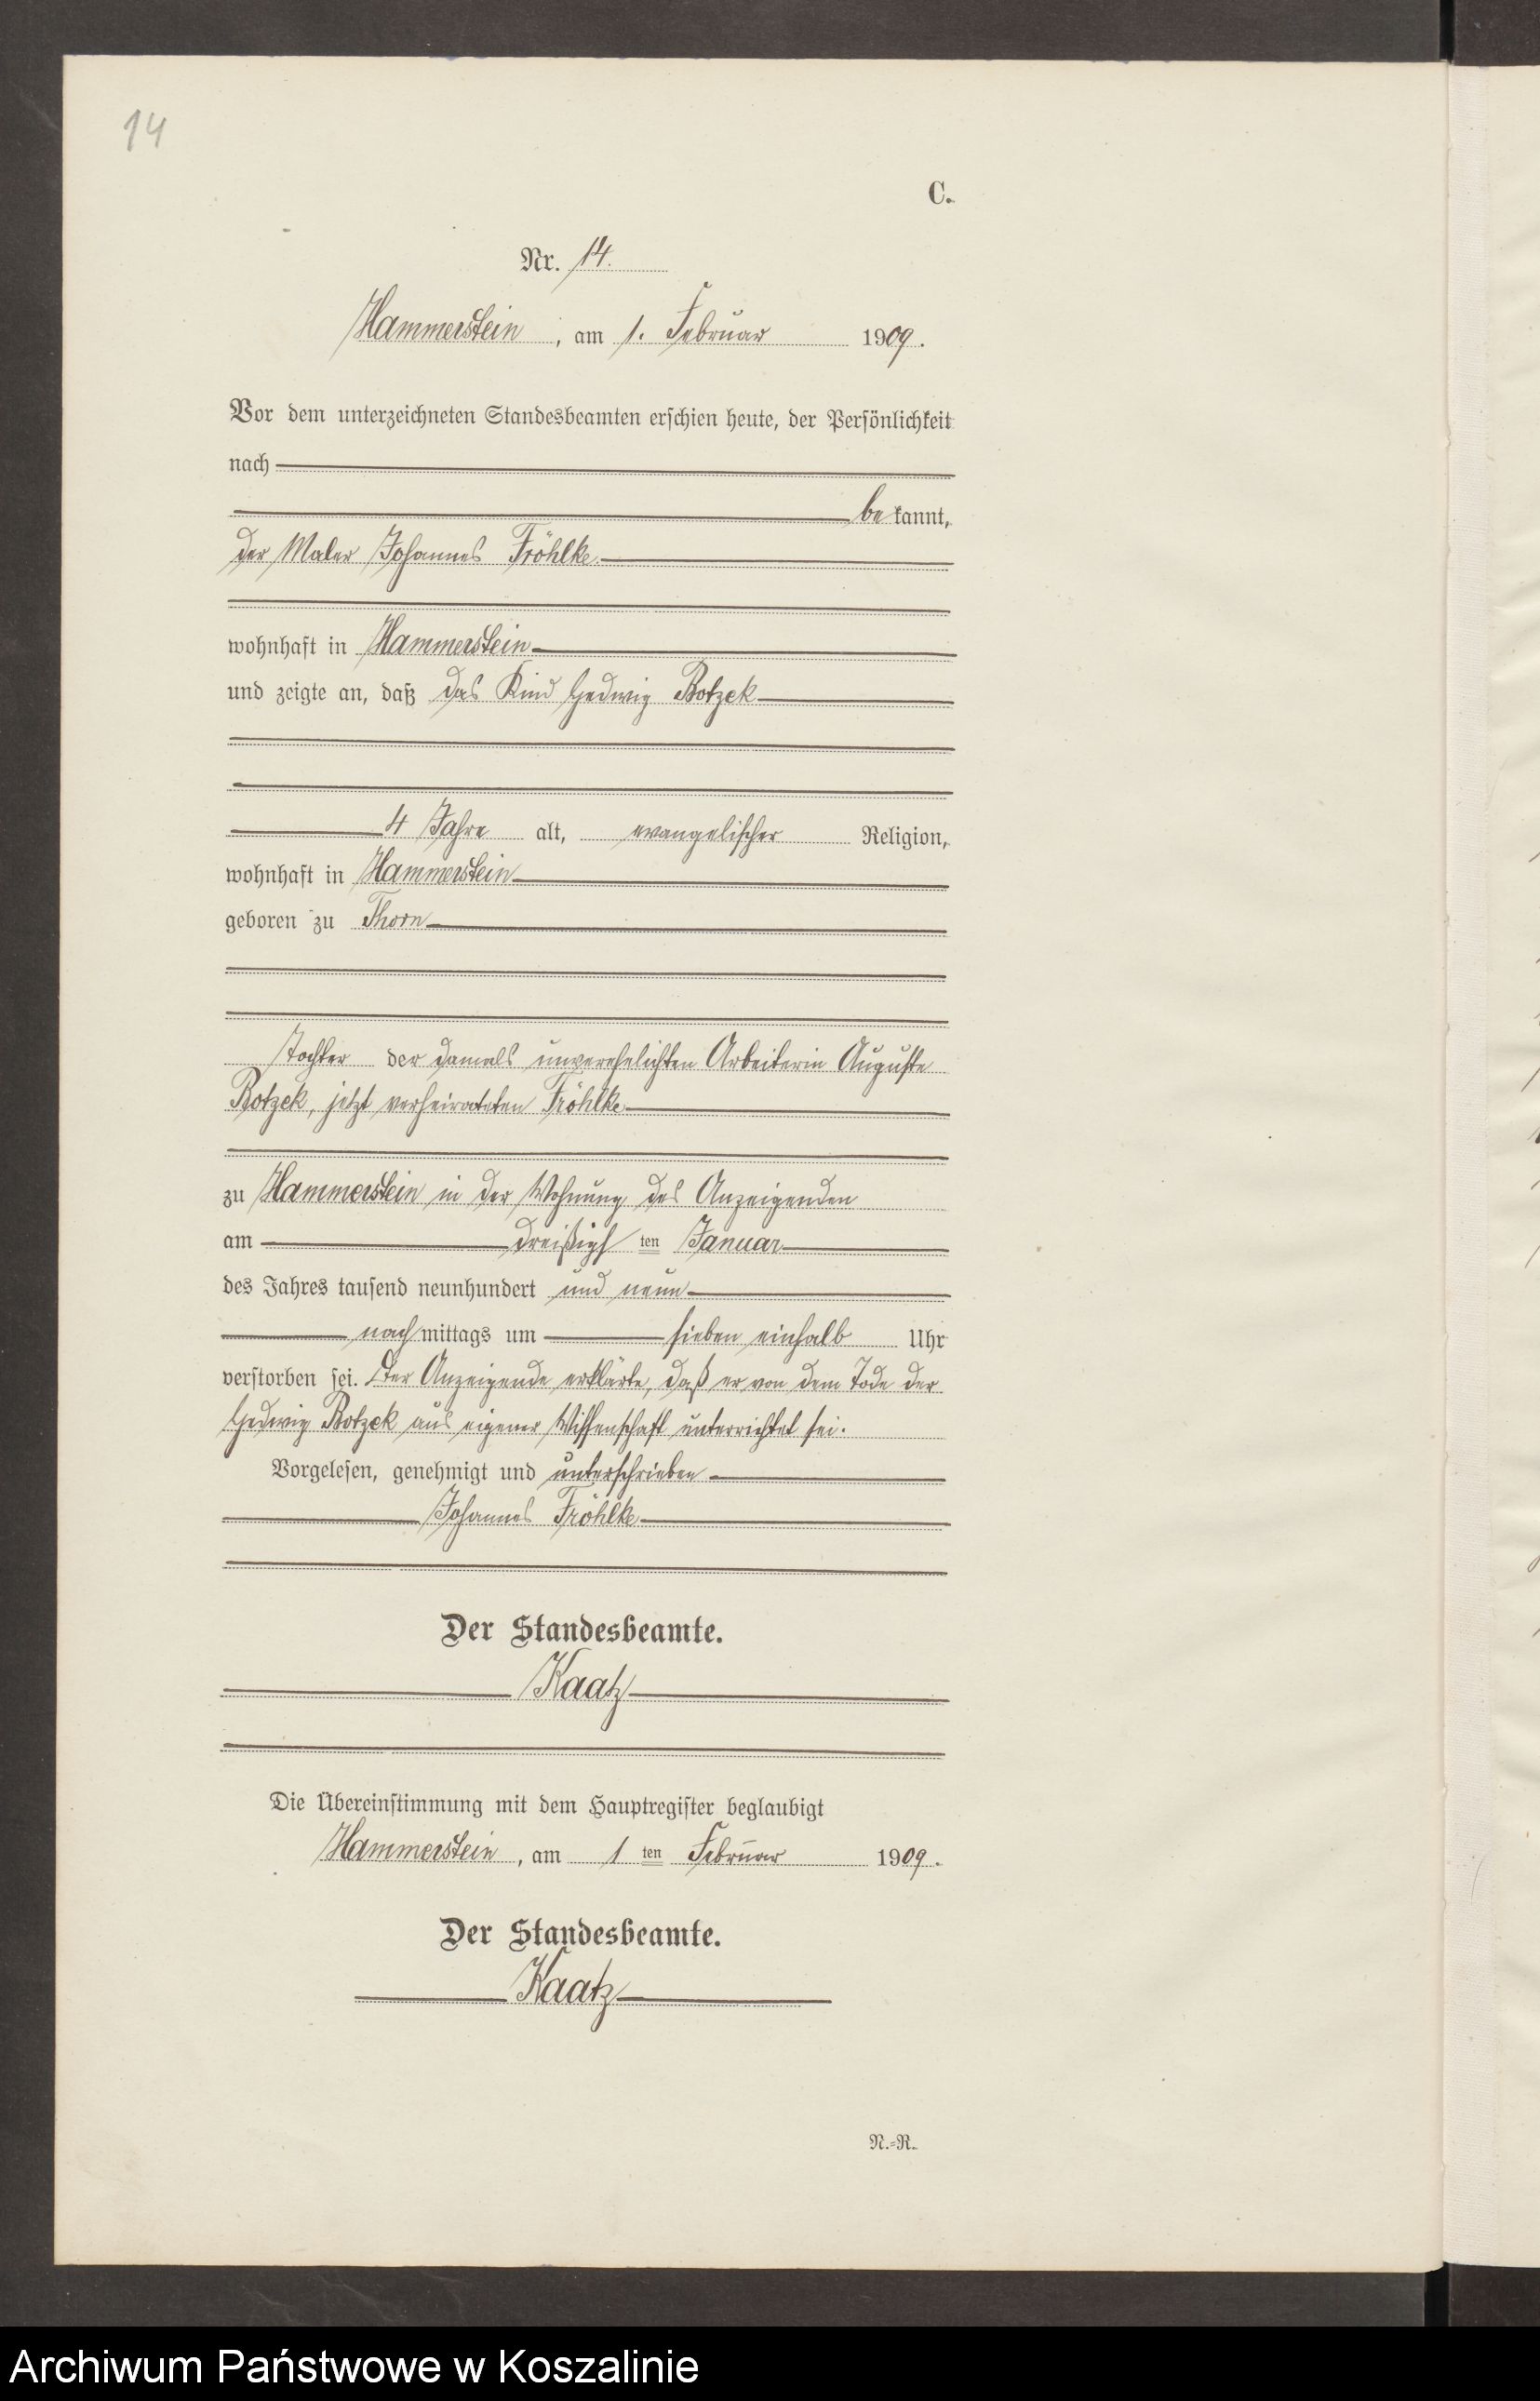 14
C.
Nr. 14.
Hammerstein, am 1. Februar 1909.
Vor dem unterzeichneten Standesbeamten erschien heute, der Persönlichkeit
nach
bekannt,
der Maler Johannes Fröhlke.
wohnhaft in Hammerstein
und zeigte an, daß das Kind Hedwig Botzek
4 Jahre alt, evangelischer Religion,
wohnhaft in Hammerstein
geboren zu Thorn
Tochter der damals unverehelichten Arbeiterin Auguste
Botzek, jetzt verheirateten Fröhlke
zu Hammerstein in der Wohnung des Anzeigenden
am dreißigsten Januar
des Jahres tausend neunhundert und neun
nachmittags um sieben einhalb Uhr
verstorben sei. Der Anzeigende erklärte, daß er von dem Tode der
Hedwig Botzek aus eigener Wissenschaft unterrichtet sei.
Vorgelesen, genehmigt und unterschrieben
Johannes Fröhlke
Der Standesbeamte.
Kaatz
Die Übereinstimmung mit dem Hauptregister beglaubigt
Hammerstein, am 1ten Februar 1909.
Der Standesbeamte.
Kaatz
N.=R.
Archiwum Państwowe w Koszalinie